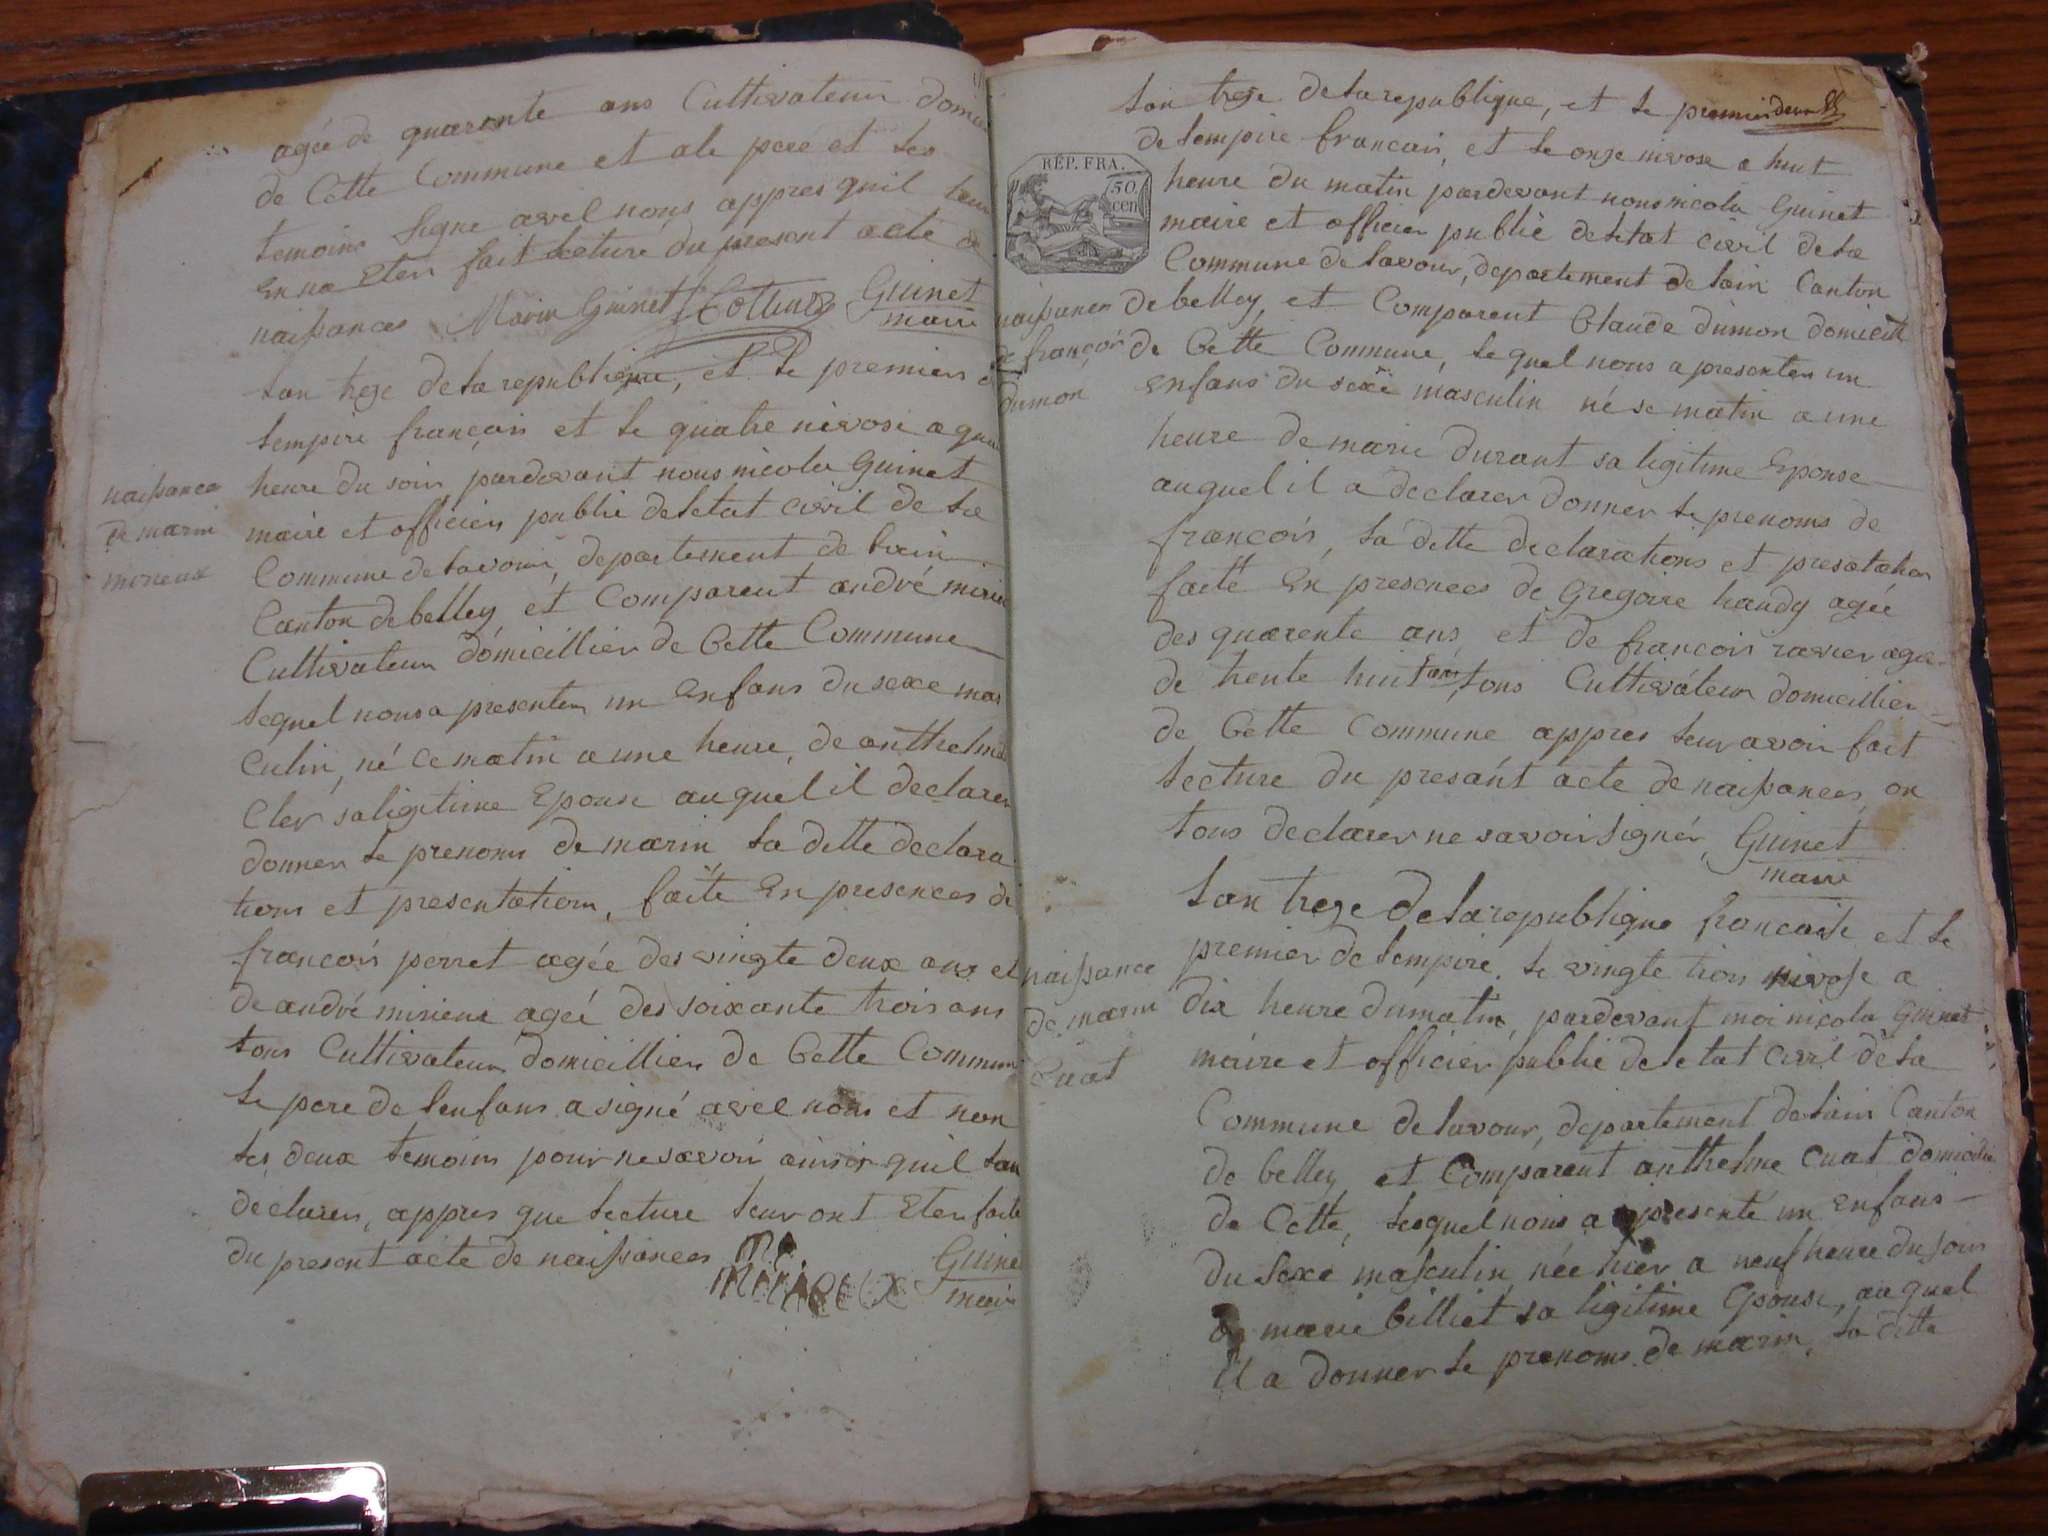 agée de quarente ans Cultivateur
de Cette Commune et ale pere et les
temoins Signe avel nous appres quil
En na Eter fait lecture du present acte de
naissances Marin Guinet Guinet
maire
naissance
de marin
mirieux
Lan treze de la republique, et le premier
lempire françois et le quatre nivose a
heure du soir pardevant nous nicola Guinet
maire et officier public de letat civil de la
Commune de lavour departement de lain
Canton de belley et Comparent andré
Cultivateur domicillier de Cette Commune
lequel nous a presenter un Enfans du sexe mas
culin, né ce matin a une heure, de anthelme
Cler sa ligitime Epouse auquel il declarer
donner le prenoms de marin la dette declara
tions et presentations, faite En presences de
françois perret agée des vingte deux ans et
de andré mirieux agée des soixante trois ans
tous Cultivateur domicillier de Cette Commune
le pere de lenfans a signé avec nous et non
les deux temoins pour ne savoir ainsis quil lon
declarer, appres que lecture leur ont Eter faite
du present acte de naissances
Guinet
maire
Lan treze de la republique, et le premier
de lempire francois, et le onze nivose a huit
RÉP. FRA.
50.
cen
heure du matin pardevant nous nicola Guinet
maire et officier public de letat civil de la
Commune de lavour, departement de lain Canton
naissances
de françois
dumon
de belley, et Comparent Claude dumon domicillé
de Cette Commune, le quel nous a presenter un
Enfans du sexe masculin né se matin a une
heure de marie durant sa ligitime Epouse
auquel il a declarer donner le prenoms de
françois, la dette declarations et presatation
faite En presences de Gregoire handy agée
des quarente ans, et de françois ravier agée
de trente huit ans tous Cultivateur domicillier
de Cette Commune appres leur avoir fait
lecture du presant acte de naissances, on
tous declarer ne savoir signér, Guinet
maire
naissance
de marin
Cuat
Lan treze de la republique francaise et le
premier de lempire, le vingte trois nivose a
dix heure du matin, pardevant moi nicola Guinet
maire et officier public de letat civil de la
Commune de lavour, departement de lain Canton
de belley et Comparent anthelme Cuat domicillié
de Cette, lesquel nous a presenté un Enfans
du Sexe masculin née hier a neuf heure du soir
de marie billiet sa ligitime Epouse, auquel
il a donner le prenoms de marin, la dette